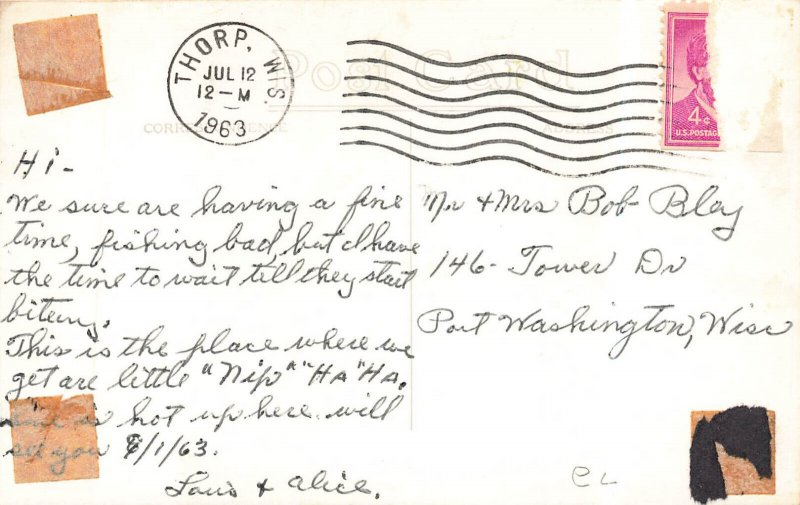 THORP, WIS.
JUL 12
12-M
1963
Post Card
CORRESPONDENCE
ADDRESS
4¢
U.S. POSTAG
Hi-
We sure are having a fine
time, fishing bad, but I have
the time to wait till they start
biteing.
This is the place where we
get are little "Nip" "HA" "HA.
is hot up here will
see you 8/1/63.
Louis & Alice.
Mr & Mrs Bob Bley
146- Tower Dr
Port Washington, Wisc
CL